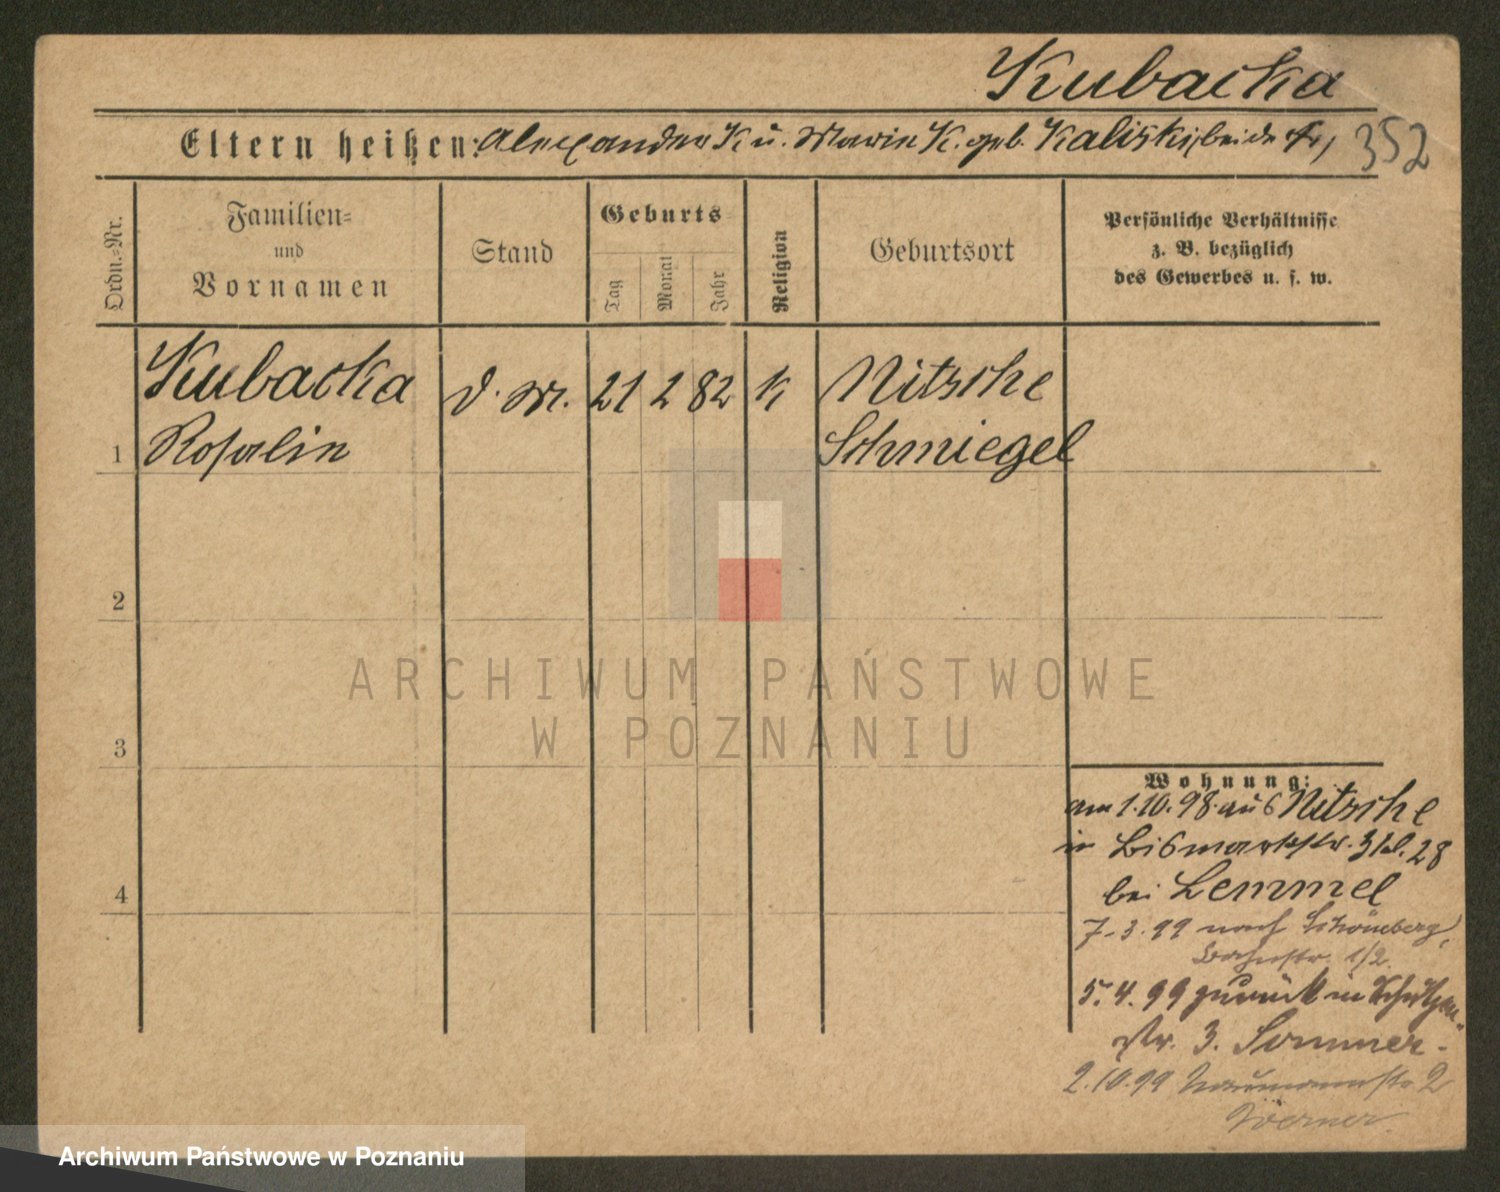 Kubacka
Eltern heißen: Alexander K u. Marie K. geb. Kaliski, beide
352
Ordn.-Nr.
Familien-
und
Vornamen
Stand
Geburts
Tag
Monat
Jahr
Religion
Geburtsort
Persönliche Verhältnisse
z. B. bezüglich
des Gewerbes u. s. w.
Kubacka d. M. 21 2 82 k Nitsche
1 Rosalie Schmiegel
2
3
4
ARCHIWUM PAŃSTWOWE
W POZNANIU
Wohnung:
am 1.10.98 aus Nitsche
in Bismarckstr. 3 bl. 28
bei Lemmel
7.3.99 nach Schöneberg,
Bahnstr. 1/2
5.4.99 zurück in Schützen-
str. 3. Sommer.
2.10.99 Naumannstr 2
Woerner.
Archiwum Państwowe w Poznaniu